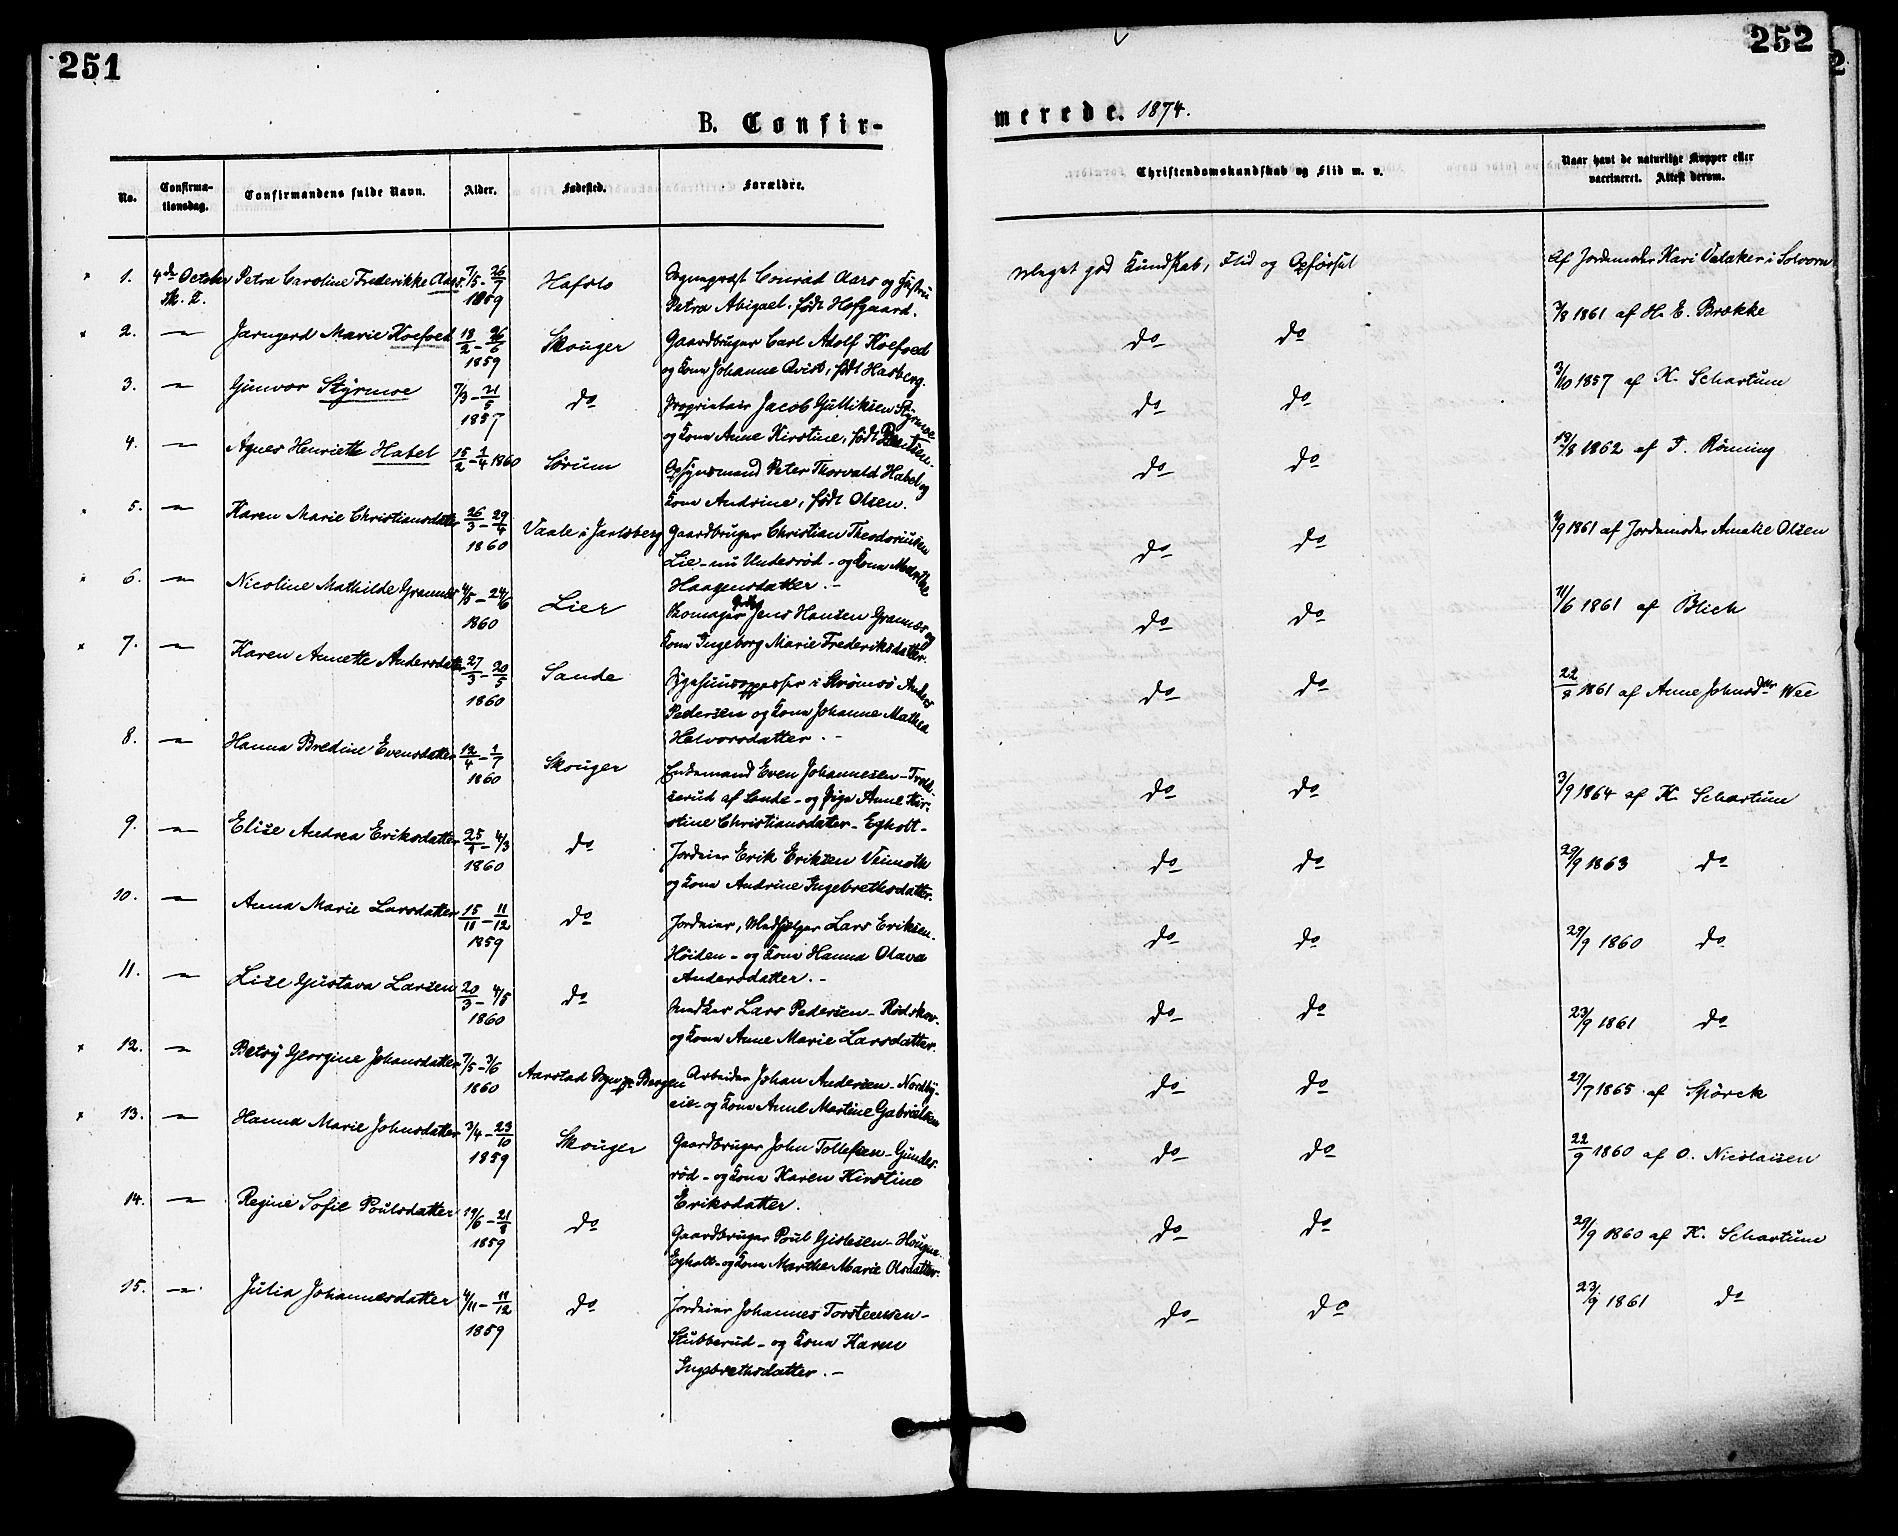 251
252
B. Confir-
merede. 1874.
No.
Confirma-
tionsdag.
Confirmandens fulde Navn.
Alder.
Fødested.
Forældre.
Christendomskundskab og Flid m. v.
Naar havt de naturlige Kopper eller
vaccineret. Attest derom.
1. 4de October Petra Caroline Frederikke Aars 7/5 - 26/7 1859 Hafslo
Sognepræst Conrad Aars og Hustru
Petra Abigael, født Hofgaard.
Meget god Kundskab, Flid og Opførsel
af Jordemoder Kari Valaker i Solvorn
2. — Jarngerd Marie Koefoed 18/2 - 26/6 1859 Skouger
Gaardbruger Carl Adolf Koefoed
og Kona Johanne Qvist, født Hasberg.
do do
7/8 1861 af H. E. Brække
3. — Gunvor Styrmoe 7/3 - 21/5 1857 do
Proprietair Jacob Gulliksen Styrmoe
og Kona Anne Kirstine, født Bentsen.
do do
3/10 1857 af K. Schartum
4. — Agnes Henriette Habel 15/2 - 1/4 1860 Sørum
Opsynsmand Peter Thorvald Habel og
Kona Andrine, født Olsen.
do do
19/8 1862 af T. Røming
5. — Karen Marie Christiansdatter 26/3 - 29/4 1860 Vaale i Jarlsberg
Gaardbruger Christian Theodoriusen
Lie - nu Underød - og Kona Marthe
Haagensdatter. -
do do
4/9 1861 af Jordemoder Amalie Olsen
6. — Nicoline Mathilde Grannes 4/5 - 24/6 1860 Lier
Skomager Jens Hansen Grannes og
Kona Ingeborg Marie Frederiksdatter.
do do
11/6 1861 af Blich
7. — Karen Annette Andersdatter 27/3 - 20/5 1860 Sande
Sygehuusopasser i Strømsø Anders
Pedersen og Kona Johanne Mathea
Halvorsdatter. -
do do
22/8 1861 af Anne Johnsdtr Wee
8. — Hanna Bredine Evensdatter 12/4 - 1/7 1860 Skouger
Enkemand Even Johannesen - Trold-
serud af Sande - og Pige Anne Kir-
stine Christiansdatter - Egholt -
do do
3/9 1864 af K. Schartum
9. — Elise Andrea Eriksdatter 25/1 - 4/3 1860 do
Jordeier Erik Eriksen Veimoth
og Kona Andrine Ingebrethsdatter.
do do
29/9 1863 do
10. — Anna Marie Larsdatter 15/11 - 11/12 1859 do
Jordeier, Medhjelper Lars Eriksen -
Høiden - og Kona Hanna Olava
Andersdatter. -
do do
29/9 1860 do
11. — Lise Gustava Larsen 20/3 - 4/5 1860 do
Snedker Lars Pedersen - Rødskov -
og Kona Anne Marie Larsdatter.
do do
23/9 1861 do
12. — Betsy Georgine Johansdatter 7/5 - 3/6 1860 Aarstad Sogn pr Bergen
Arbeider Johan Andersen - Nordby-
eie - og Kona Anne Martine Gabrielsen
do do
29/7 1865 af Spørck
13. — Hanna Marie Johnsdatter 3/4 - 23/10 1859 Skouger
Gaardbruger John Tollefsen - Gundes-
rød - og Kona Karen Kirstine
Eriksdatter.
do do
22/9 1860 af O. Nicolaisen
14. — Regine Sofie Poulsdatter 19/6 - 21/8 1859 do
Gaardbruger Poul Gislesen - Hougne
Egholt - og Kona Marthe Marie Olsdatter.
do do
29/9 1860 af K. Schartum
15. — Julia Johannesdatter 4/11 - 11/12 1859 do
Jordeier Johannes Torstensen -
Stubberud - og Kona Karen
Ingebrethsdatter. -
do do
23/9 1861 do